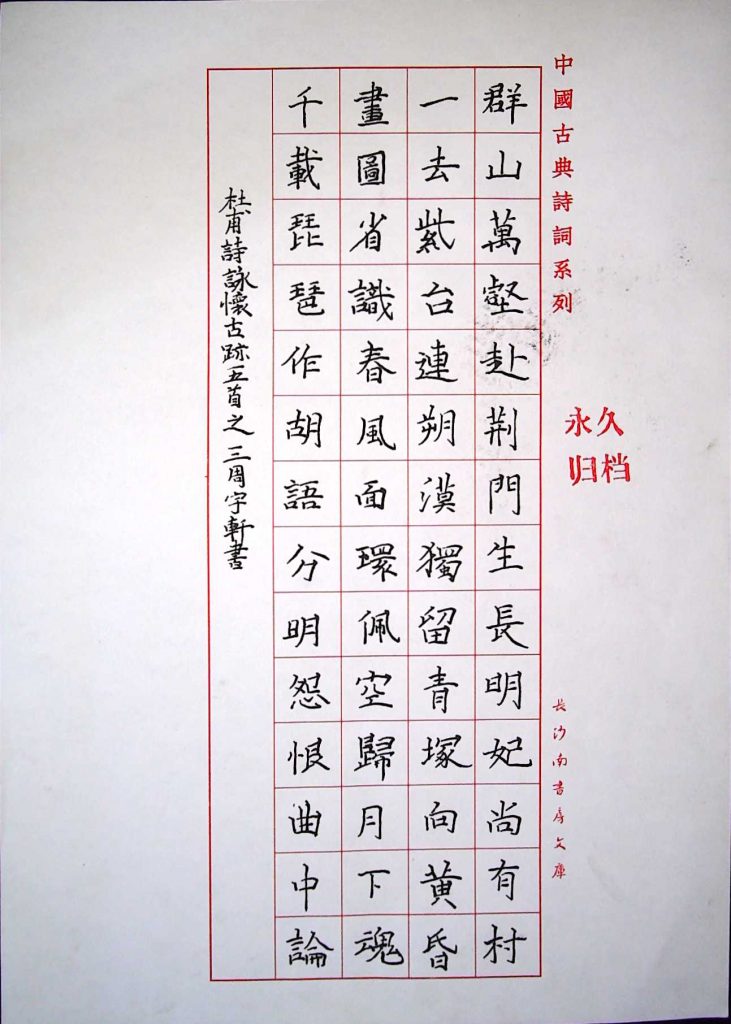 中國古典詩詞系列
永久
归档
長沙南書房文庫
群山萬壑赴荆門生長明妃尚有村
一去紫台連朔漠獨留青塚向黃昏
畫圖省識春風面環佩空歸月下魂
千載琵琶作胡語分明怨恨曲中論
杜甫詩詠懷古跡五首之三周字軒書